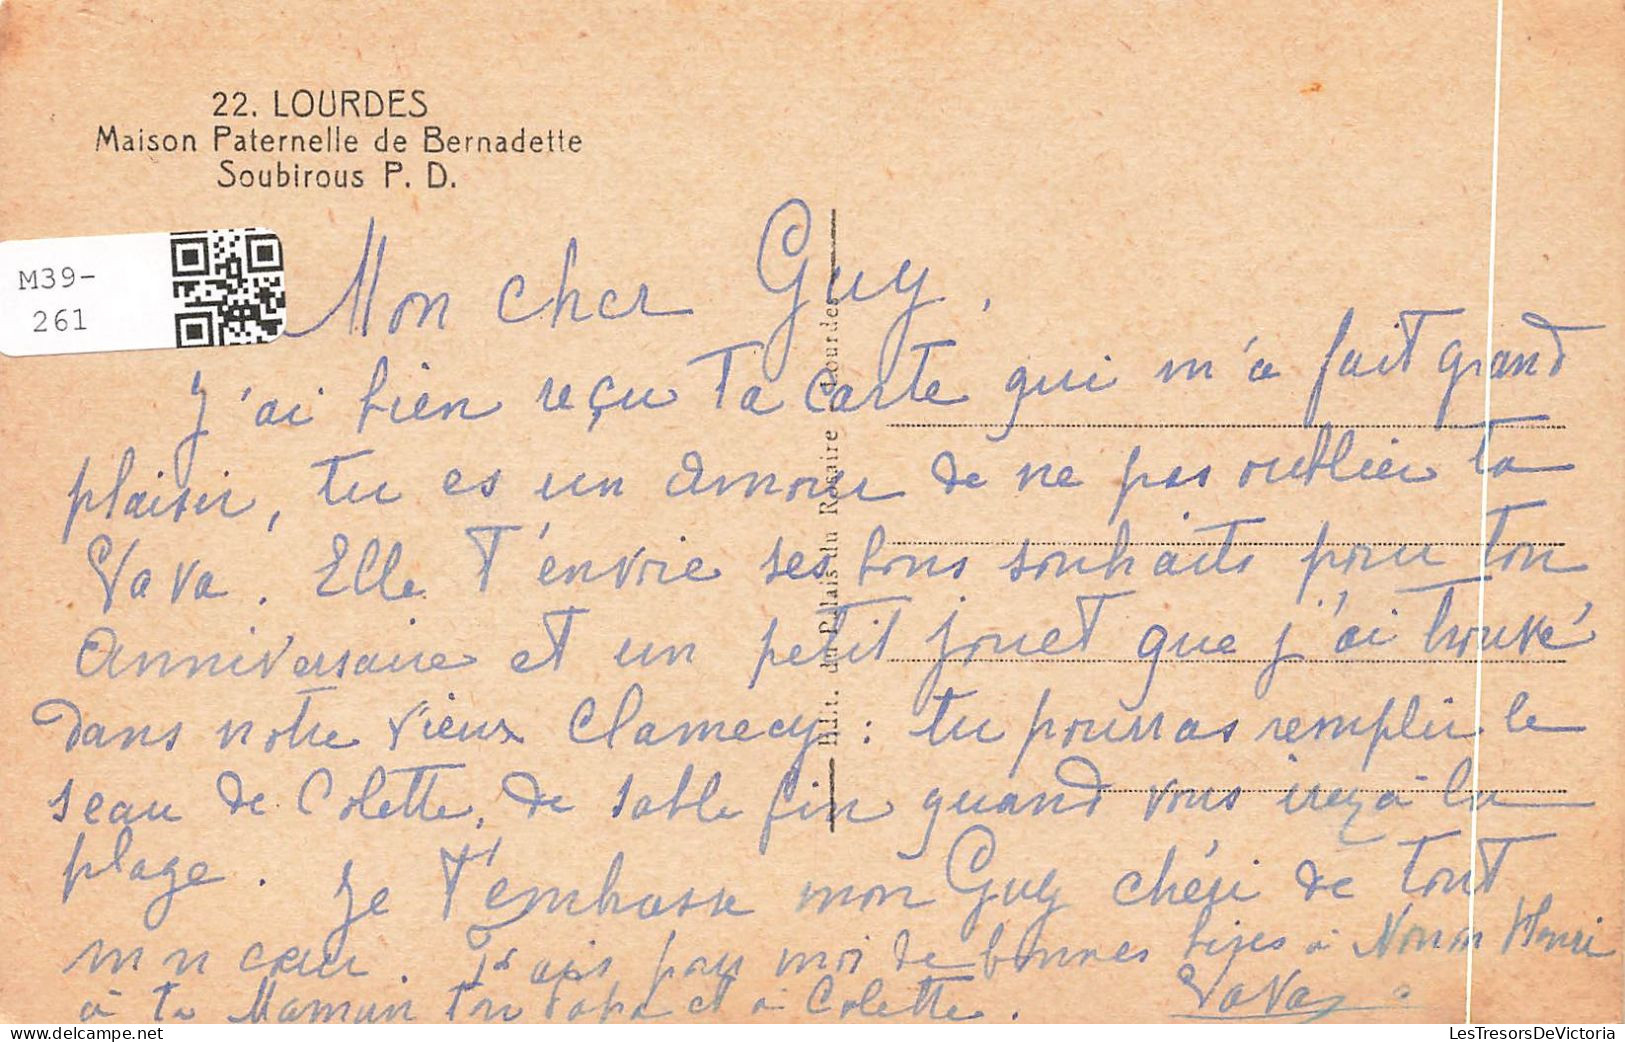 22. LOURDES
Maison Paternelle de Bernadette
Soubirous P. D.
M39-
261
Mon cher Guy,
J'ai bien reçu Ta carte qui m'a fait grand
plaisir, tu es un amour de ne pas oublier ta
Vava. Elle T'envoie ses bons souhaits pour ton
Anniversaire et un petit jouet que j'ai trouvé
dans notre vieux Clamecy : tu pourras remplir le
seau de Colette, de sable fin quand vous irez à la
plage. Je t'embrasse mon Guy chéri de tout
mon cœur. Fais pour moi de bonnes bises à Nonon Henri
à ta Maman ton Papa et à Colette. Vava
Edit. du Palais du Rosaire Lourdes
LesTresorsDeVictoria